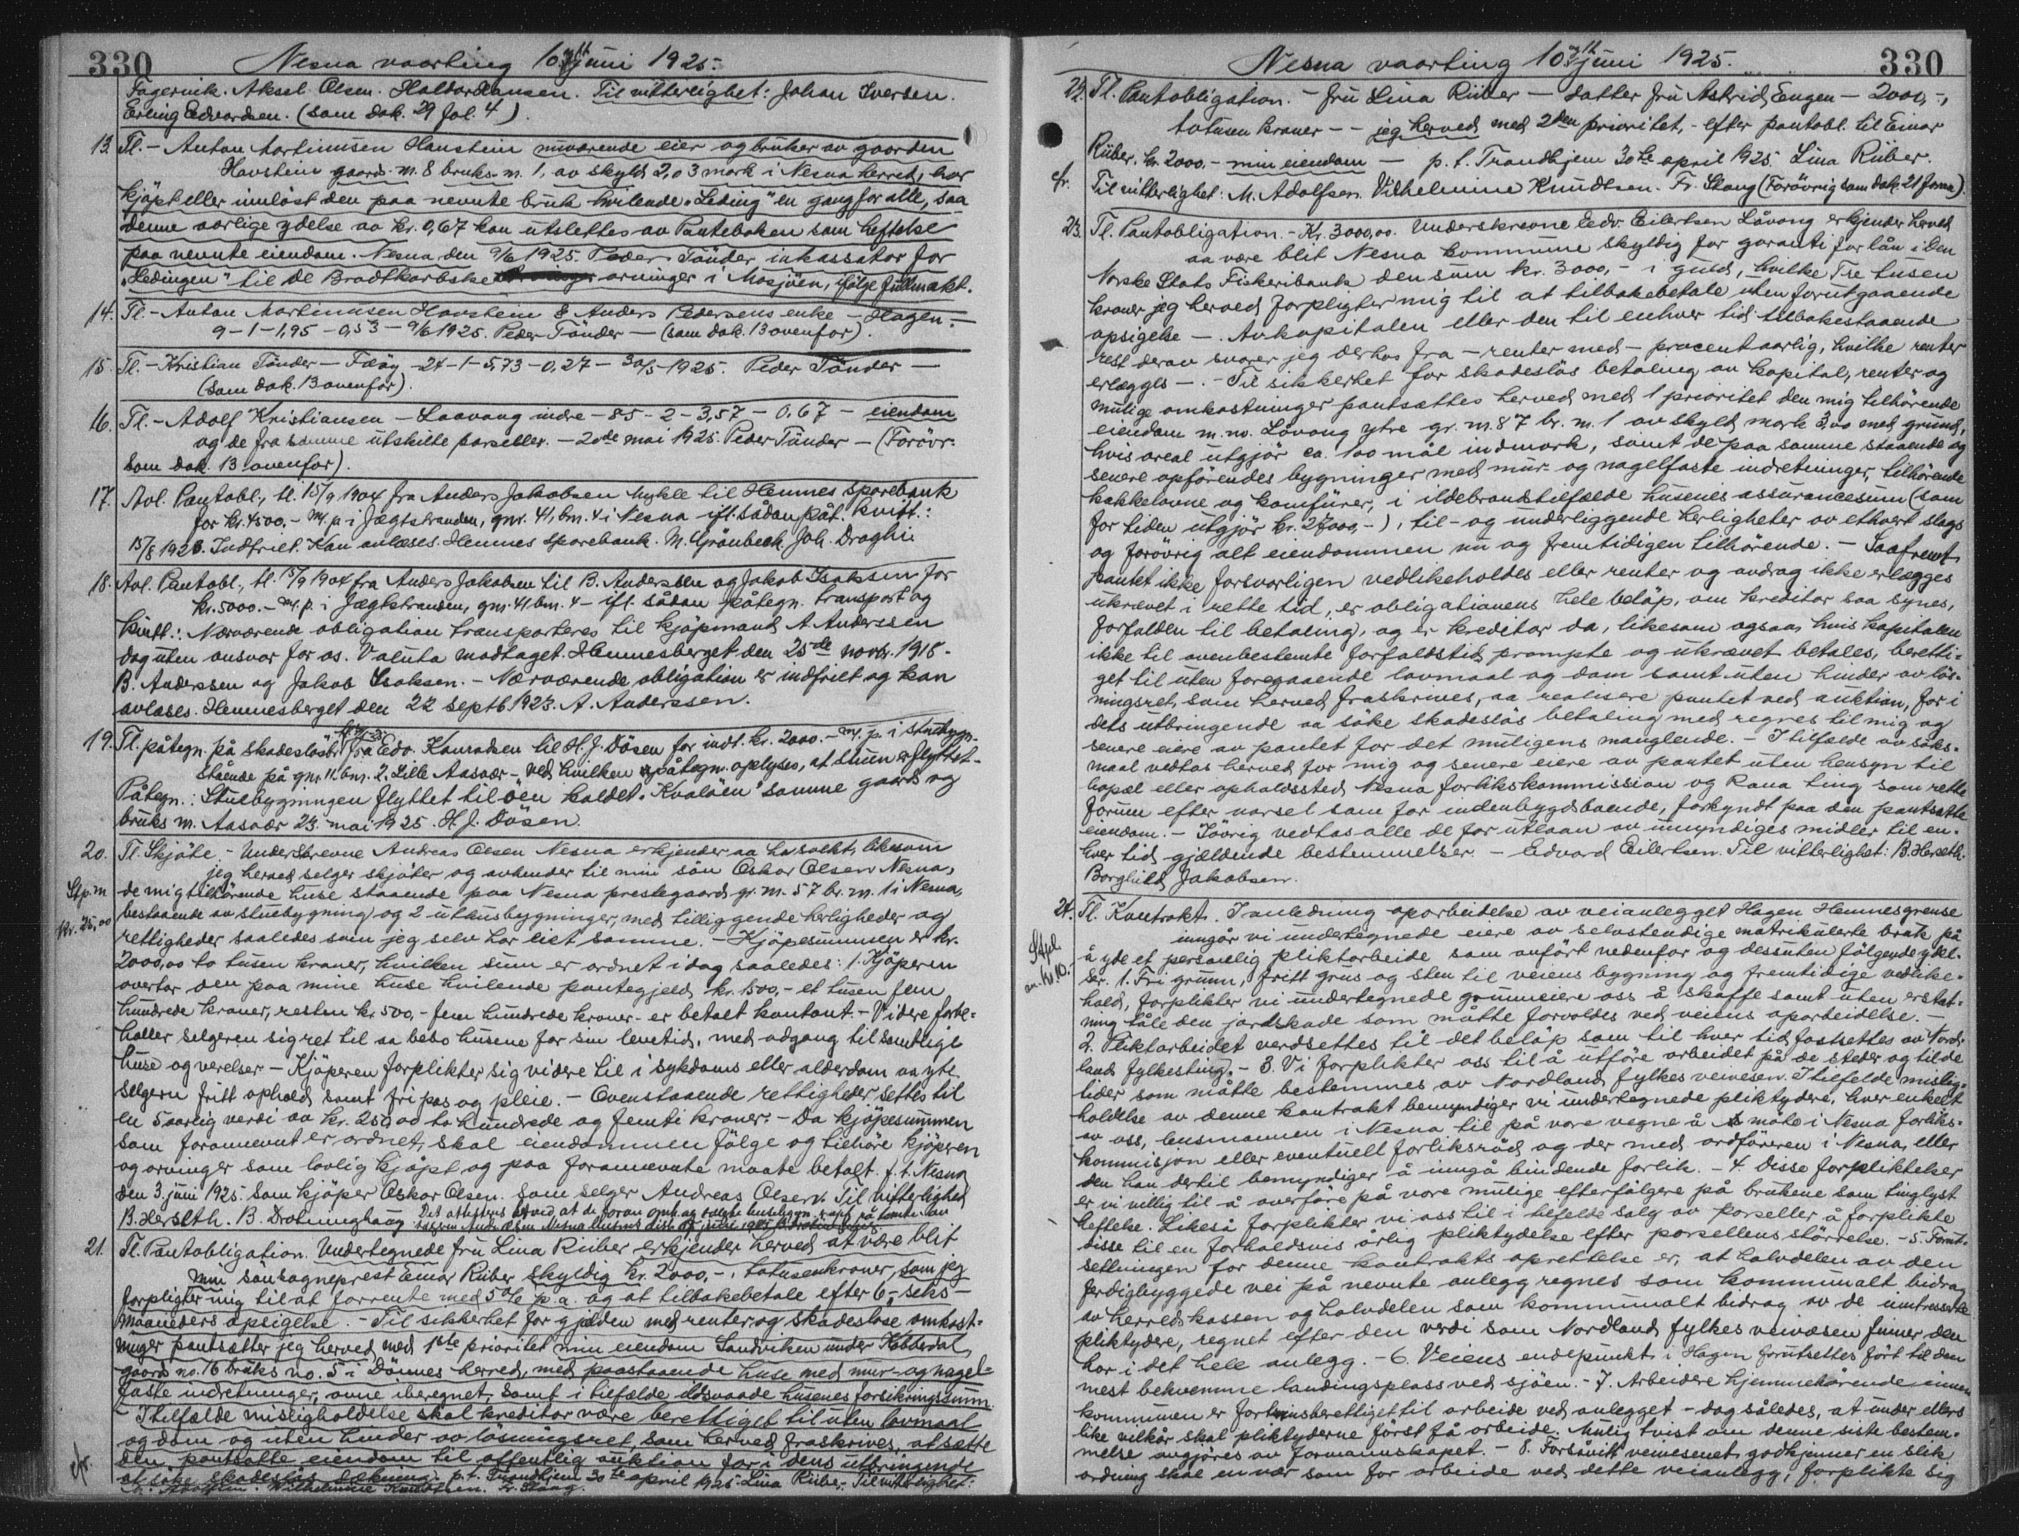 330
Nesna vaarting 10de juni 1925.
Fagervik. Aksel Olsen. Haldor Hansen. Til vitterlighet: Johan Iversen.
Erling Edvardsen. (som dok. 29 fol. 4).
13. Tl. - Anton Martinusen Havstein nuværende eier og bruker av gaarden
Havstein gaards-nr. 8 bruks-nr. 1, av skyld 2,03 mark i Nesna herred, har
kjöpt eller innlöst den paa nevnte bruk hvilende "Leding" en gang for alle, saa
denne aarlige ydelse av kr. 0,67 kan utslettes av Panteboken som heftelse
paa nevnte eiendom. Nesna den 9/6 1925. Peder Tönder inkassator for
"Ledingen" til de Brodtkorbske arvinger i Mosjöen, ifölge fullmakt.
14. Tl. - Anton Martinusen Havstein & Anders Pedersens enke - Hagen -
9 - 1 - 1,95 - 0,53 - 9/6 1925. Peder Tönder - (som dok. 13 ovenfor).
15. Tl. - Kristian Tönder - Faröy - 24 - 1 - 5,73 - 0,27 - 30/5 - 1925. Peder Tönder -
(som dok. 13 ovenfor).
16. Tl. - Adolf Kristiansen - Laavang indre - 85 - 2 - 3,57 - 0,67 - eiendom
og de fra samme utskilte parseller. - 20de mai 1925. Peder Tönder - (Forövr.
som dok. 13 ovenfor).
17. Avl. Pantobl., tl. 15/9 1904 fra Anders Jakobsen Mykle til Hemnes sparebank
for kr. 4500.- m. p. i Jægtstranden, gnr. 41, bnr. 4 i Nesna ifl. sådan påt. kvitt.:
15/8 1923. Indfriet. Kan avlæses. Hemnes sparebank. M. Grønbech. Joh. Draghi
18. Avl. Pantobl., tl. 15/9 1904 fra Anders Jakobsen til B. Anderssen og Jakob Isaksen for
kr. 5000.- m. p. i Jægtstranden, gnr. 41, bnr. 4 - ifl. sådan påtegn. transport og
kvitt.: Nærværende obligation transporteres til kjöpmand A. Anderssen
dog uten ansvar for os. Valuta modtaget. Hemnesberget den 25de novbr. 1918.
B. Anderssen og Jakob Isaksen. - Nærværende obligation er indfriet og kan
avlæses. Hemnesberget den 22 septb 1923. A. Anderssen.
19. Tl. påtegn. på skadeslösbr. fra Edv. Konradsen til H. J. Dösen for indt. kr. 2000.- m. p. i stuebygn.
stående på gnr. 11. bnr. 2. Lille Aasvær - ved hvilken påtegn. oplyses, at stuen er flyttet -
Påtegn.: Stuebygningen flyttet til öen kaldet "Kvalöen" samme gaards og
bruks nr. Aasvær 23. mai 1925. H. J. Dösen.
20. Tl. Skjöte. - Underskrevne Andreas Olsen Nesna erkjender aa ha solgt, likesom
Stp. m. jeg herved selger skjöter og avhender til min sön Oskar Olsen Nesna,
de mig tilhörende huse staaende paa Nesna prestegaard gr. nr. 57 br. nr. 1 i Nesna,
kr. 25,00 bestaaende av stuebygning og 2 uthusbygninger, med tilliggende herligheder og
rettigheder saaledes som jeg selv har eiet samme. - Kjöpesummen er kr.
2000,00 to tusen kroner, hvilken sum er ordnet idag saaledes: 1. Kjöperen
overtar den paa mine huse hvilende pantegjeld kr. 1500,- et tusen fem
hundrede kroner, resten kr. 500,- fem hundrede kroner - er betalt kontant. - Videre forbe-
holler selgeren sig ret til aa bebo husene for sin levetid, med adgang til samtlige
huse og verelser - Kjöperen forplikter sig videre til i sykdoms eller alderdom aa yte
selgeren fritt ophold samt fri pas og pleie. - Ovenstaaende rettigheder settes til
en 5 aarlig verdi av kr. 250,00 to hundrede og femti kroner. - Da kjöpesummen
som forannevnt er ordnet, skal eiendommen fölge og tilhöre kjöperen
og arvinger som lovlig kjöpt og paa forannevnte maate betalt. f. t. Nesna
den 3. juni 1925. Som kjöper Oskar Olsen. Som selger Andreas Olsen. Til vitterlighed
B. Herseth. B. Drotninghaug
21. Tl. Pantobligation. Undertegnede fru Lina Rüber erkjender herved at være blit
min sön sogneprest Einar Rüber skyldig kr. 2000,-, totusenkroner, som jeg
forpligter mig til at forrente med 5 % p. a. og at tilbakebetale efter 6,- seks -
maaneders opsigelse. - Til sikkerhet for gjelden med renter og skadeslöse omkost-
ninger pantsætter jeg herved med 1ste prioritet min eiendom Sandviken under Kobberdal
gaards no. 16 bruks no. 5 i Dönnes herred, med paastaaende huse med mur- og nagel-
faste indretninger, ovne iberegnet, samt i tilfælde ildsvaade husenes forsikringssum.
- I tilfælde misligholdelse skal kreditor være berettiget til uten lovmaal
og dom og uten hinder av lösningsret, som herved fraskrives, at sætte
den pantsatte eiendom til offentlig auktion for i dens utbringende
cfr. at söke skadeslös dækning. p. t. Trondhjem 30te april 1925. Lina Rüber. Til vitterlighet:
M. Adolfsen. Wilhelmine Knudtsen. Fr. Skaug.
Nesna vaarting 10de juni 1925.
330
22. Tl. Pantobligation. - fru Lina Rüber - datter fru Astrid Engen - 2000,-,
totusen kroner - - jeg herved med 2den prioritet, - efter pantobl. til Einar
Rüber, kr. 2000.- min eiendom - p. t. Trondhjem 30te april 1925. Lina Rüber.
cfr. Til vitterlighet: M. Adolfsen. Vilhelmine Knudtsen. Fr. Skaug (Forövrig som dok. 21 foran).
23. Tl. Pantobligation. - Kr. 3000,00. Underskrevne Edv. Eilertsen Låvong erkjender herved
aa være blit Nesna kommune skyldig for garanti for lån i den
Norske Stats Fiskeribank den sum kr. 3000,- i guld, hvilke Tre tusen
kroner jeg herved forpligter mig til at tilbakebetale uten forutgaaende
opsigelse -. Av kapitalen eller den til enhver tid tilbakestaaende
rest derav svarer jeg derhos fra - renter med - procent aarlig, hvilke renter
erlægges -. - Til sikkerhet for skadeslös betaling av kapital, renter og
mulige omkostninger pantsættes herved med 1 prioritet den mig tilhörende
eiendom m. nr. Låvong ytre gr. nr. 87 br. nr. 1 av skyld mark 3,00 med grund,
hvis areal utgjör ca. 100 mål indmark, samt de paa samme staaende og
senere opförendes bygninger med mur- og nagelfaste indretninger, tilhörende
kakkelovne og komfürer, i ildebrandstilfælde husenes assurancesum (som
for tiden utgjör kr. 27000,-), til - og underliggende herligheter av ethvert slags
og forövrig alt eiendommen nu og fremtidigen tilhörende. - Saafremt
pantet ikke forsvarligen vedlikeholdes eller renter og avdrag ikke erlægges
ukrævet i rette tid, er obligationens hele belöp, om kreditor saa synes,
forfalden til betaling, og er kreditor da, likesom ogsaa, hvis kapitalen
ikke til ovenbestemte forfaldstid prompte og ukrævet betales, beretti-
get til uten foregaaende lovmaal og dom samt uten hinder av lös-
ningsret, som herved fraskrives, aa realisere pantet ved auktion, for i
dets utbringende aa söke skadeslös betaling med regres til mig og
senere eiere av pantet for det muligens manglende. - I tilfælde av söks-
maal vedtas herved for mig og senere eiere av pantet uten hensyn til
bopæl eller opholdssted Nesna forlikskommission og Rana ting som rette
forum efter varsel som for indenbygdsboende, forkyndt paa den pantsatte
eiendom. - Iövrig vedtas alle de for utlaan av umyndiges midler til en-
hver tid gjældende bestemmelser. - Edvard Eilertsen. Til vitterlighet: B. Herseth.
Borghild Jakobsen.
24. Tl. Kontrakt. I anledning oparbeidelse av veianlegget Hagen Hemnesgrense
inngår vi undertegnede eiere av selvstendige matrikulerte bruk på
Stpl. m. kr. 10.- å yde et personlig pliktarbeide som anfört nedenfor og dessuten fölgende ydel-
ser. 1. Fri grunn, fritt grus og sten til veiens bygning og fremtidige vedlike-
hold, forplikter vi undertegnede grunneiere oss å skaffe samt uten erstat-
ning tåle den jordskade som måtte forvoldes ved veiens oparbeidelse. -
2. Pliktarbeidet verdsettes til det belöp som til hver tid fastsettes av Nord-
lands fylkesting. - 3. Vi forplikter oss til å utföre arbeidet på de steder og til de
tider som måtte bestemmes av Nordland fylkes veivesen. I tilfelde mislig-
holdelse av denne kontrakt bemyndiger vi undertegnede pliktydere, hver enkelt
av oss, lensmannen i Nesna til på vore vegne å möte i Nesna forliks-
kommisjon eller eventuelt forliksråd og der med ordföreren i Nesna, eller
den han dertil bemyndiger å inngå bindende forlik. - 4. Disse forpliktelser
er vi villig til å overföre på vore mulige efterfölgere på brukene som tinglyst
heftelse. Likeså forplikter vi oss til i tilfelde salg av parseller å forplikte
disse til en forholdsvis årlig pliktydelse efter parsellens störrelse. - 5. Forut-
setningen for denne kontrakts oprettelse er, at halvdelen av den
ferdigbyggede vei på nevnte anlegg regnes som kommunalt bidrag
av herredskassen og halvdelen som kommunalt bidrag av de interesserte
pliktydere, regnet efter den verdi som Nordland fylkes veivæsen finner den
har i det hele anlegg. - 6. Veiens endepunkt i Hagen forutsettes fört til den
mest bekvemme landingsplass ved sjöen. - 7. Arbeidere hjemmehörende innen
kommunen er fortrinsberettiget til arbeide ved anlegget - dog således, at under ellers
like vilkår skal pliktyderne först få arbeide. Mulig tvist om denne siste bestem-
melse avgjöres av formannskapet. - 8. Forsåvidt veivesenet godkjenner en slik
ordning skal enhver som får arbeide ved dette veianlegg, forplikte sig